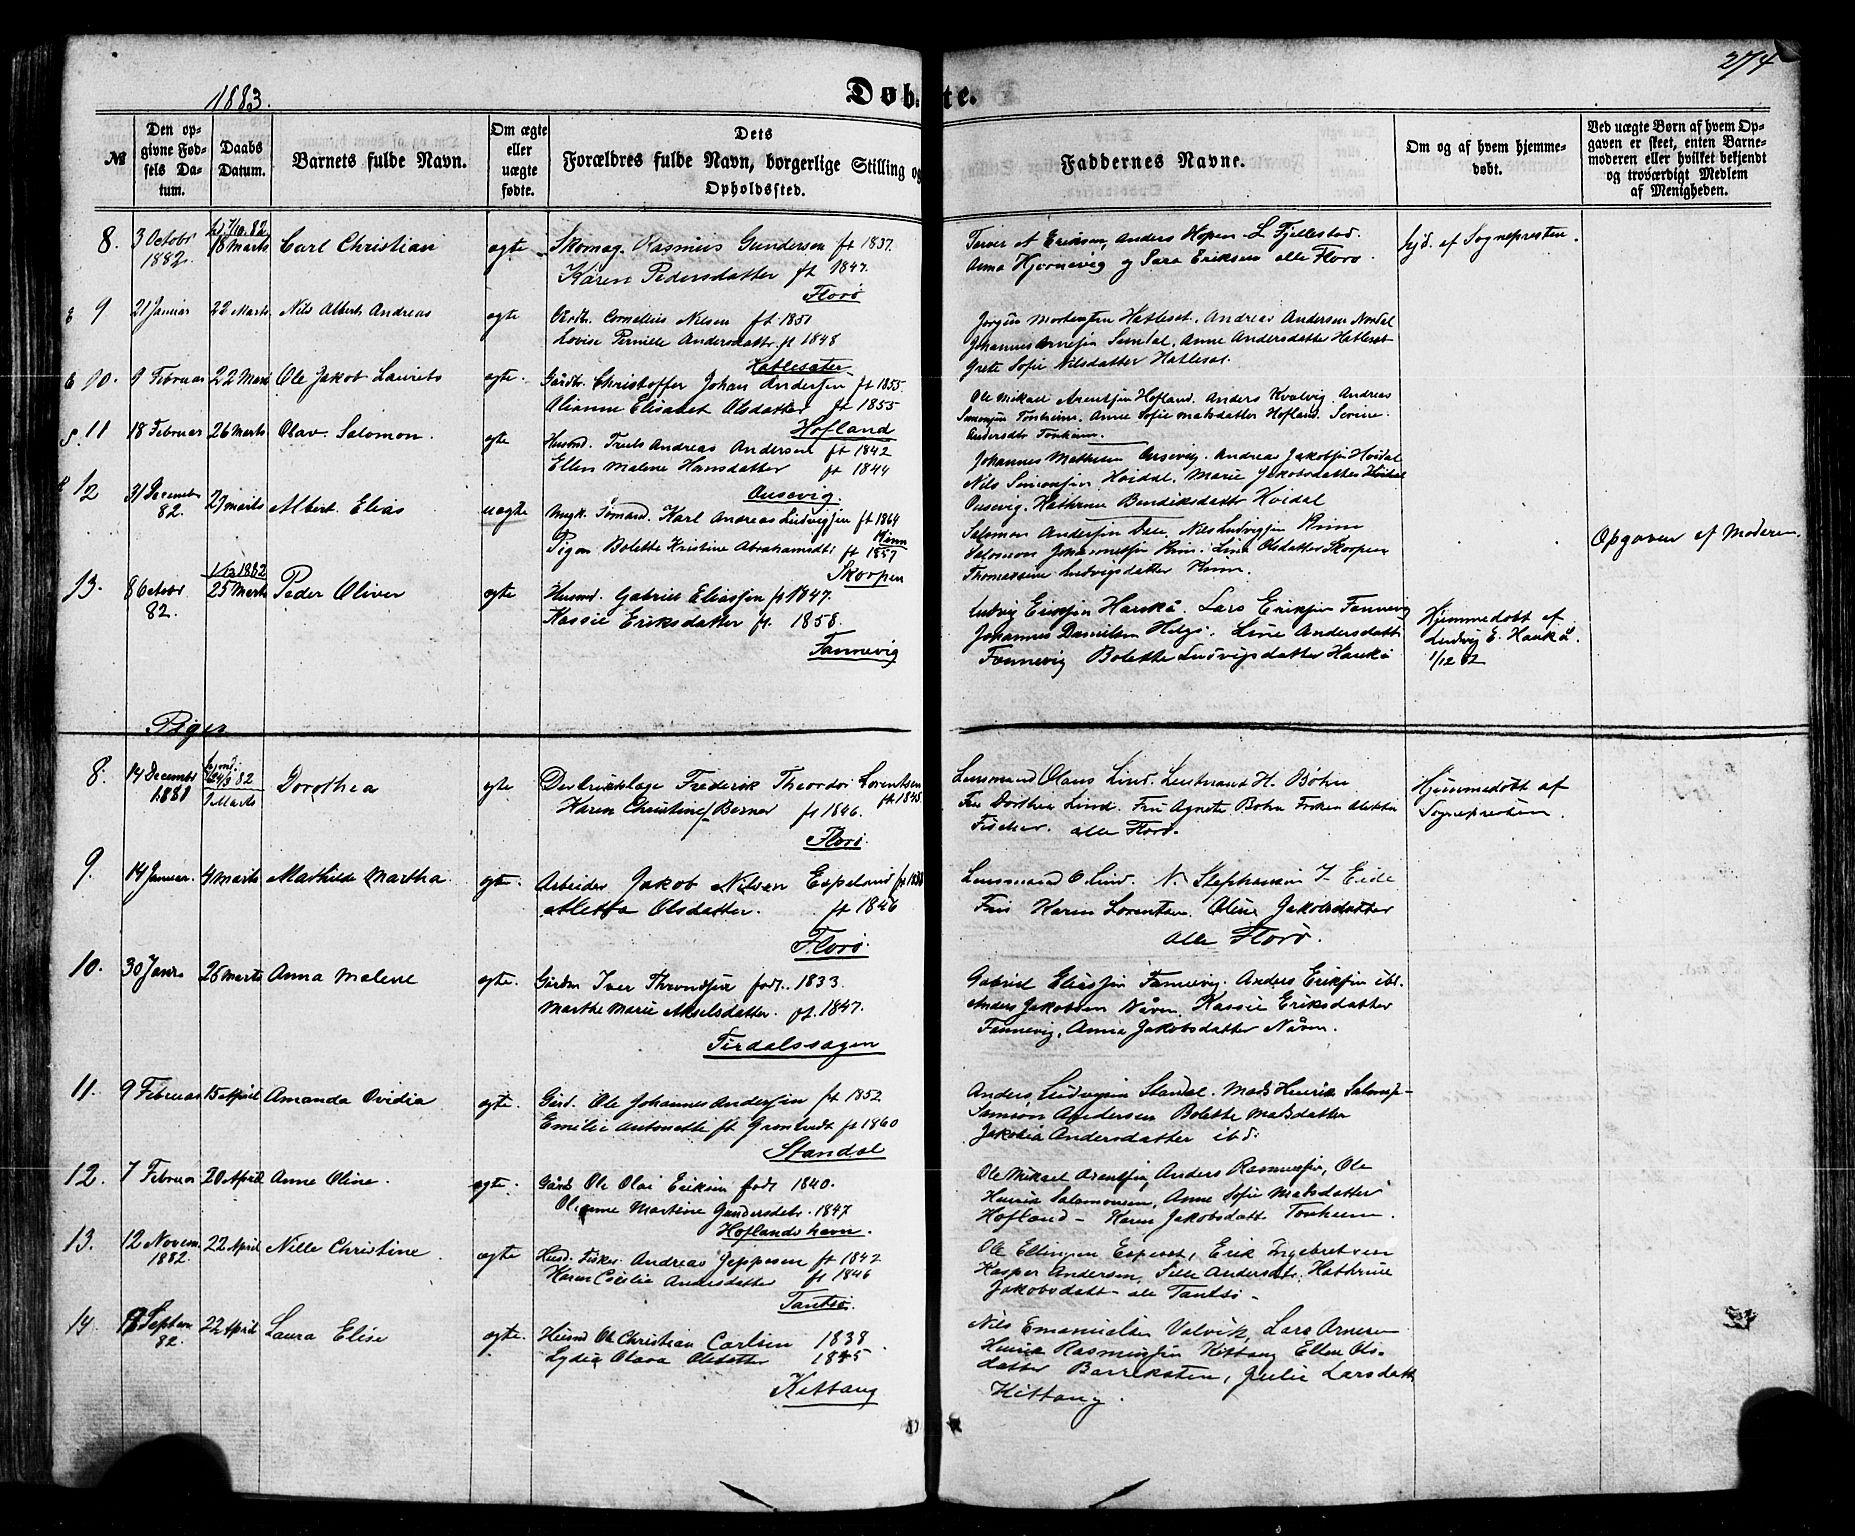 274
1883.
Døbte.
№
Den opgivne Fødsels Datum.
Daabs Datum.
Barnets fulde Navn.
Om ægte eller uægte fødte.
Dets Forældres fulde Navn, borgerlige Stilling og Opholdssted.
Faddernes Navne.
Om og af hvem hjemmedøbt.
Ved uægte Børn af hvem Opgaven er skeet, enten Barnemoderen eller hvilket bekjendt og troværdigt Medlem af Menigheden.
8. 3 Octobr 1882. 18 Marts Carl Christian ægte Skomag. Rasmus Gunderson ft 1837.
Karen Pedersdatter ft 1847.
Florø
Anders Hopen L. Fjellestad.
Anna Hjørnevig og Sara Eriksen alle Florø.
hjd. af Sognepresten.
9 21 Januar 22 Marts Nils Albert Andreas ægte Cornelius Nilsen ft 1851
Lovise Pernille Andersdattr ft 1848
Hatlesæter
Jørgen Mortensen Hatleset. Andreas Andersen Nordal
Johannes Arnesen Sundal. Anne Andersdatter Hatleset
Grete Sofie Nilsdatter Hatleset.
10. 9 Februar 22 Marts Ole Jakob Laurits ægte. Gårdbr. Christoffer Johan Andersen ft 1855
Olianne Elisabet Olsdatter ft 1855
Hofland
Ole Mikael Arentsen Hofland. Anders Kvalvig. Andreas
Simonsen Tonheim. Anne Sofie Matsdatter Hofland. Serine
Andersdtr Tonheim.
11 18 Februar 26 Marts Olav Salomon. ægte Husmd. Truls Andreas Andersen ft 1842
Ellen Malene Hansdatter ft 1844
Ausevig.
Johannes Mathisen Ausevig. Andreas Jakobsen Hovdal
Nils Simonsen Hovdal. Marie Jakobsdatter Hovdal
Ausevig. Kathrine Bendiksdatter Hovdal
12 31 December 82. 27 Marts Albert Elias uægte Ungk. Sømand. Karl Andreas Ludvigsen ft 1864
Kinn
Pigen Bolette Kristine Abrahamsdtr ft 1857
Skorpen
Salomon Andersen Dale. Nils Ludvigsen Kinn
Salomon Johannessen Kinn. Line Olsdatter Skorpen
Thomassine Ludvigsdatter Kinn.
Opgaven af Moderen.
13. 8 Octobr 82. 25 Marts Peder Oliver ægte Husmd. Gabriel Eliassen ft 1847.
Kassie Eriksdatter ft. 1858.
Fannevig
Ludvig Eriksen Haukå. Lars Eriksen Fannevig
Johannes Danielsen Helgø. Line Andersdatt.
Fannevig Bolette Ludvigsdatter Haukå
Hjemmedøbt af
Ludvig E. Haukå.
1/12 82
Piger
8. 14 Decembr 1881 1 Marts Dorothea ægte Destriktslæge Frederik Theordor Lorentsen ft 1845
Karen Christine f. Berner ft 1846.
Florø
Lensmand Olaus Lind. Leutnant H. Bøhn
Fru Dorthea Lind. Fru Agnete Bøhn Frøken Aletta
Fischer. alle Florø.
Hjemmedøbt af
Sognepresten.
9. 14 Januar. 4 Marts Mathilde Martha ægte. Arbeider Jakob Nilsen Espeland
Aletta Olsdatter. ft 1846
Florø.
Lensmand O Lind. N. Stephansen I Eide
Fru Karen Lorentsen. Oline Jakobsdatter
alle Florø.
10. 30 Janr 26 Marts Anna Malene ægte. Gårdm Iver Throndsen født. 1833.
Marthe Marie Akselsdatter. ft. 1847.
Tirdalssagen
Gabriel Eliassen Fannevig. Anders Eriksen ibd.
Anders Jakobsen Nåven. Kassie Eriksdatter
Fannevig. Anna Jakobsdatter Nåven.
11. 9 Februar 15 April Amanda Ovidia ægte. Gård. Ole Johannes Andersen ft 1852
Emilie Antonette ft 1860
Standal
Anders Ludvigsen Standal. Mads Henrik Saloms.
Samson Andersen Bolette Madsdatter
Jakobia Andersdatter ibd.
12. 7 Februar 20 April Anne Oline. ægte. Gårdb Ole Olai Eriksen født 1840.
Olianne Martine Gundersdtr. 1847
Hoflands havn.
Ole Mikael Arentsen, Anders Rasmussen, Ole
Henrik Salomonsen, Anne Sofie Matsdatter
Hofland – Karen Jakobsdatt. Tonheim.
13. 12 Novem. 1882. 22 April Nille Christine. ægte Husd. Fisker Andreas Jeppesen ft 1842
Karen Cecilie Andersdatter ft 1846
Tansø.
Ole Ellingsen Espeset, Erik Ingebretsen
Kasper Andersen, Sille Andersdtr, Kathrine
Jakobsdatt – alle Tansø –
14 Septem 82. 22 April Laura Elise ægte. Husmd Ole Christian Carlsen 1838
Lydia Olava Olsdatter 1845
Kittang
Nils Emanuelsen Valvik, Lars Arnesen
Henrik Rasmussen Kittang Ellen Ols-
datter Barreksten, Julie Larsdatt.
Kittang.